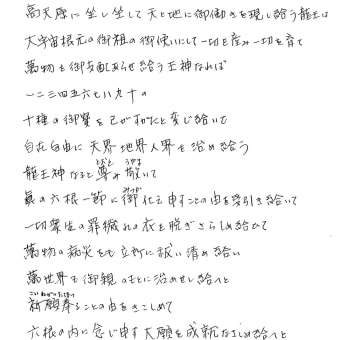 高天原に坐し坐して天と地に御働きを現し給う龍王は
大宇宙根元の御祖の御使いにして一切を産み一切を育て
萬物を御支配あらせ給う王神なれば
一二三四五六七八九十の
十種の御寶を己がすがたと変じ給いて
自在自由に天界地界人界を治め給う
龍王神なるを尊み敬いて
とおと うやま
眞の六根一筋に御仕え申すことの由を受引き給いて
みつか
愚かなる心の数々を戒め給いて
一切衆生の罪穢れの衣を脱ぎさらしめ給いて
萬物の病災をも立所に祓い清め給い
萬世界も御親のもとに治めせしめ給へと
こいねがいたてまつ
祈願奉ることの由をきこしめして
六根の内に念じ申す大願を成就なさしめ給へと